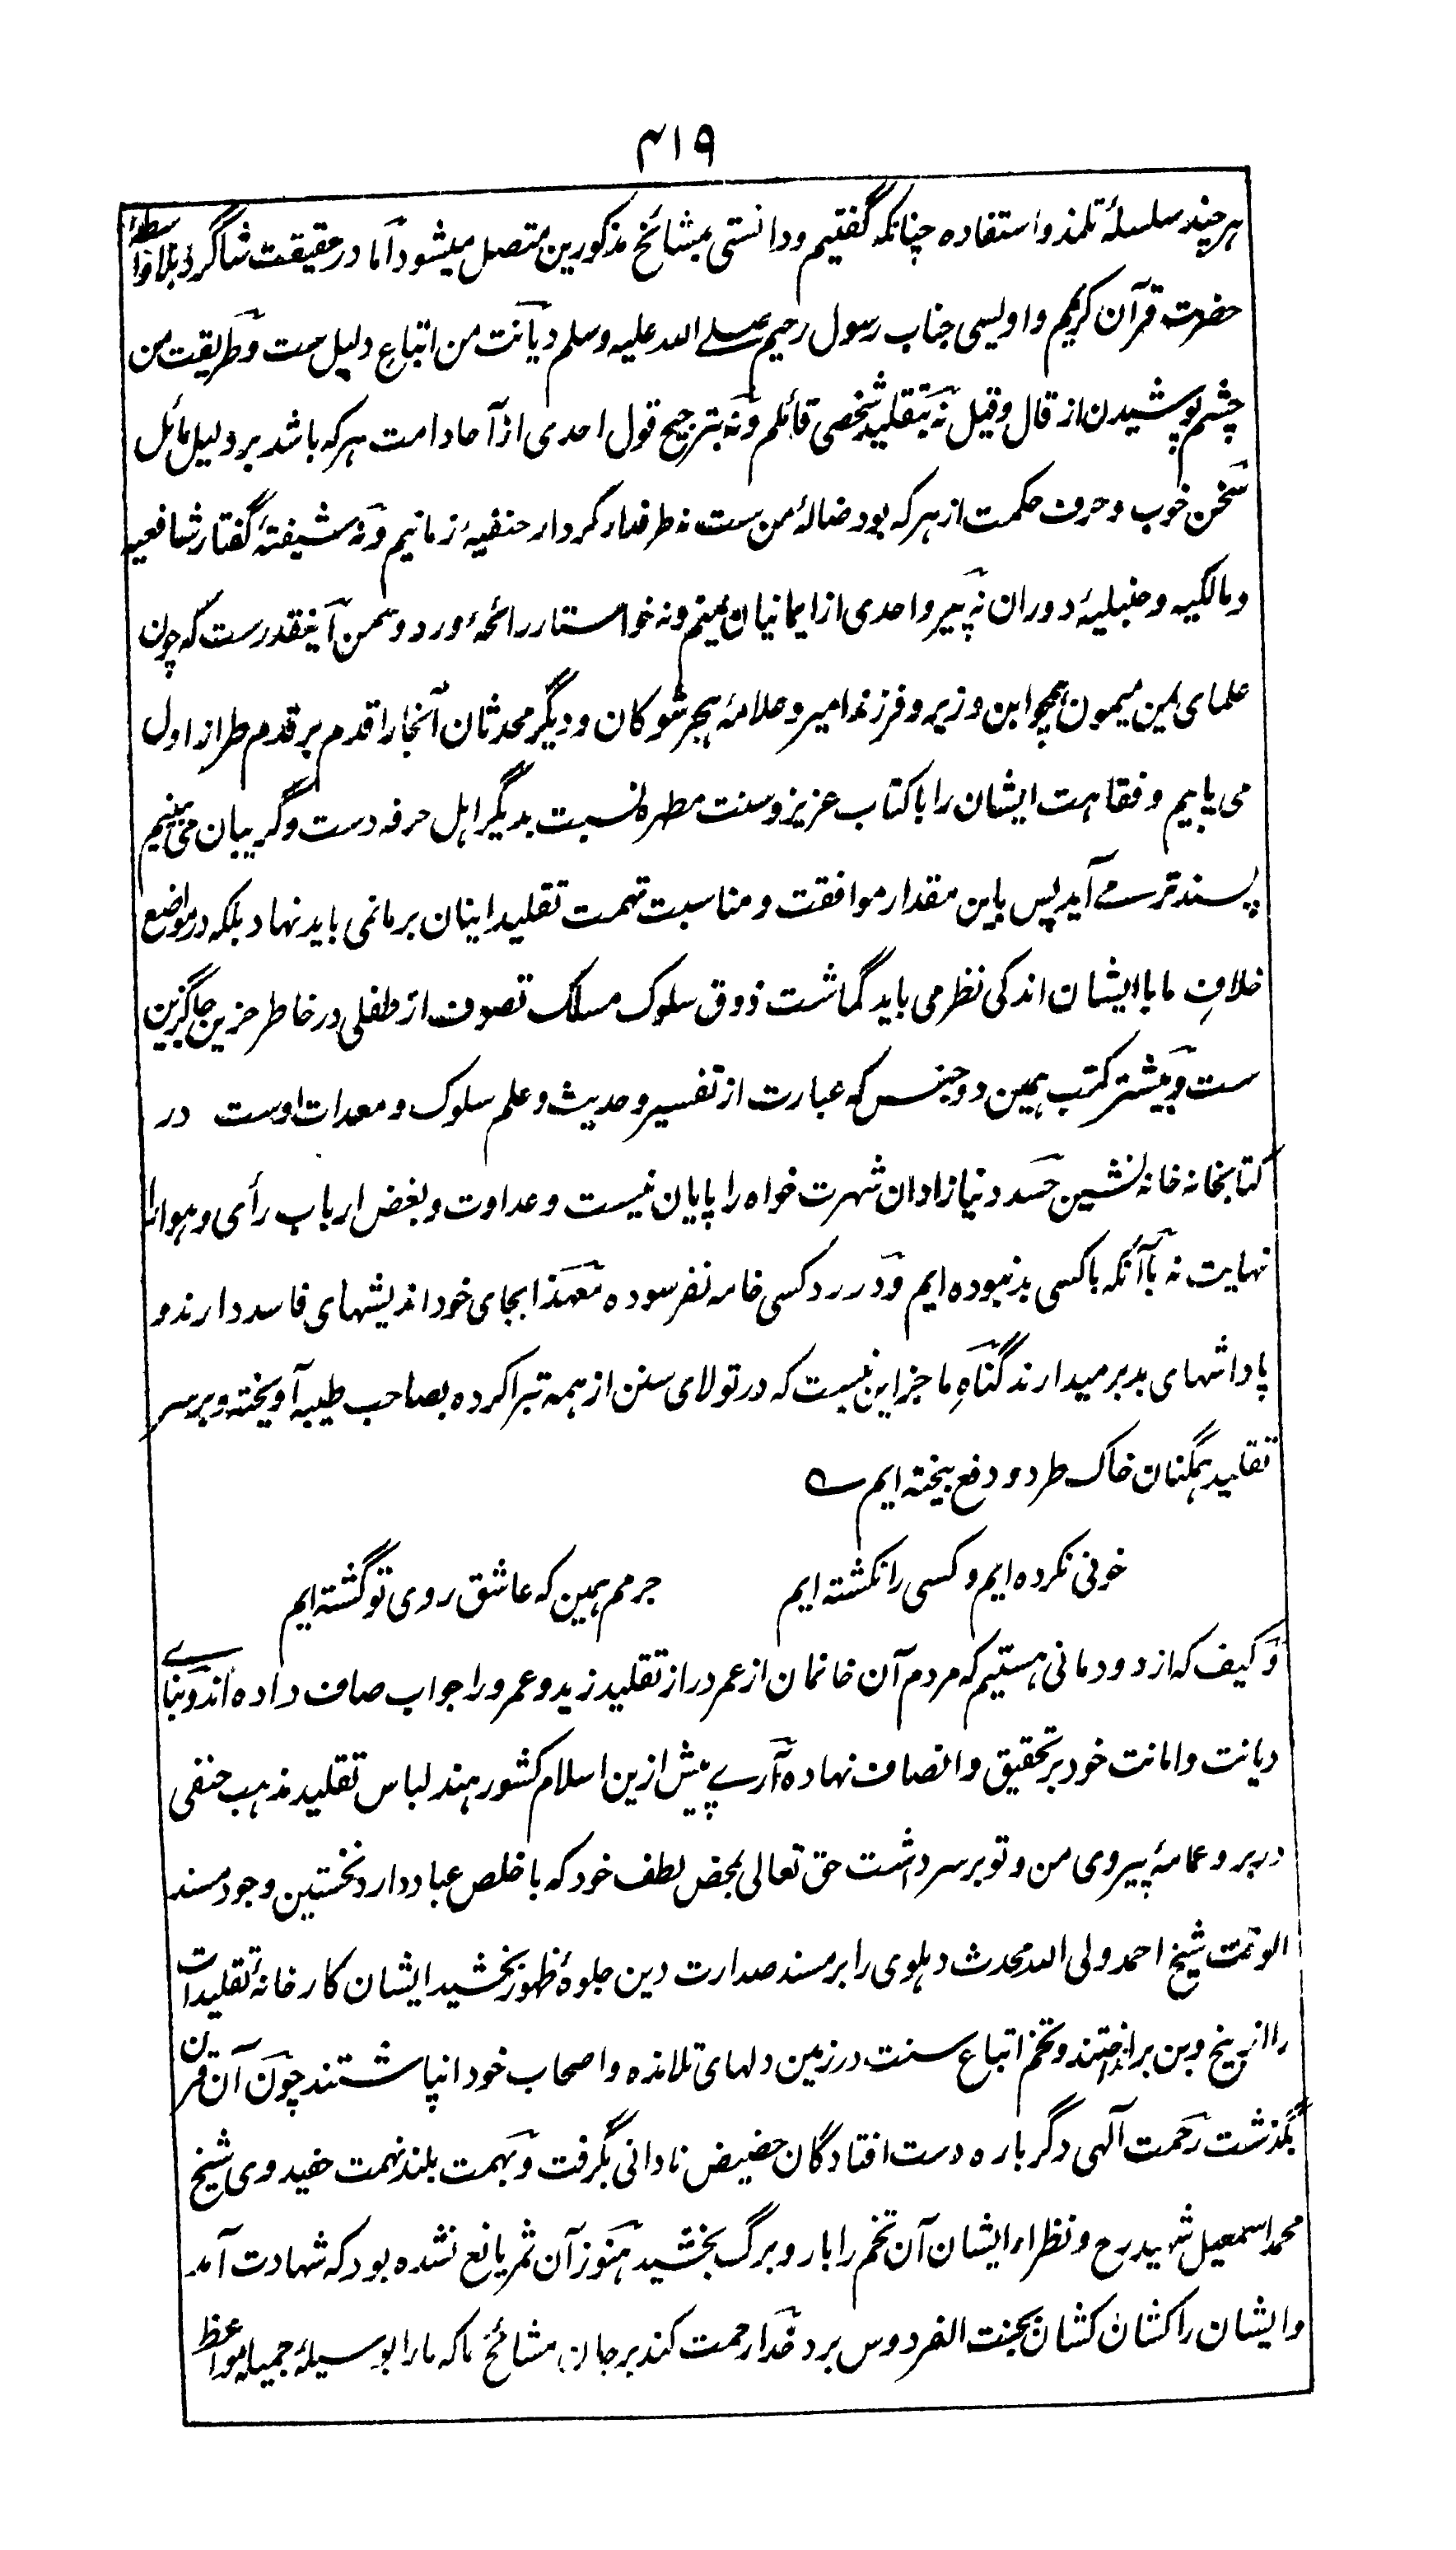 ۴۱۹
هر چند سلسلۀ تلمذ و استفاده چنانکه گفتیم و دانستی بمشائخ مذکورین متصل میشود اما در حقیقت شاگرد بلا واسطۀ
حضرت قرآن کریم و اویسی جناب رسول رحیم صلے الله علیه وسلم دیانت من اتباع دلیل ست و طریقت من
چشم پوشیدن از قال و قیل نه بتقلید شخصی قائلم و نه بترجیح قول احدی از آحاد امت هر که باشد بر دلیل مائل
سخن خوب و حرف حکمت از هر که بود ضالۀ من ست نه طرفدار کردار حنفیۀ زمانیم و نه شیفتۀ گفتار شافعیه
و مالکیه و حنبلیۀ دوران نه پیرو احدی از ایمانیان یمنیم و نه خواستار رائحۀ ورد و سمن اینقدرست که چون
علمای یمن میمون همچو ابن وزیر و فرزند امیر و علامۀ هجر شوکان و دیگر محدثان آنجا را قدم بر قدم طراز اول
می یابیم و فقاهت ایشان را با کتاب عزیز و سنت مطهره نسبت بدیگر اهل حرفه دست و گریبان می بینیم
پسند تر مے آید پس باین مقدار موافقت و مناسبت تهمت تقلید اینان بر ما نمی باید نهاد بلکه در مواضع
خلافِ ما با ایشان اندکی نظر می باید گماشت ذوق سلوک مسلک تصوف از طفلی در خاطر حزین جاگزین
ست و بیشتر کتب همین دو جنس که عبارت از تفسیر و حدیث و علم سلوک و معدات اوست در
کتابخانه خانه نشین حسد دنیازادان شهرت خواه را پایان نیست و عداوت و بغض ارباب رأی و هوا را
نهایت نه با آنکه با کسی بد نبوده ایم و در رد کسی خامه نفرسوده معهذا بجای خود اندیشهای فاسد دارند و
پاداشهای بد بر میدارند گناهِ ما جز این نیست که در تولای سنن از همه تبرا کرده بصاحب طیبه آویخته و بر سر
تقلید همگنان خاک طرد و دفع بیخته ایم ؎
خونی نکرده ایم و کسی را نکشته ایم جرمم همین که عاشق روی تو گشته ایم
و کیف که از دودمانی هستیم که مردم آن خانمان از عمر دراز تقلید زید و عمرو را جواب صاف داده اند و بنای
دیانت و امانت خود بر تحقیق و انصاف نهاده آرے پیش ازین اسلام کشور هند لباس تقلید مذهب حنفی
در بر و عمامۀ پیروی من و تو بر سر داشت حق تعالی بمحض لطف خود که با خلص عباد دارد نخستین وجود مسند
الوقت شیخ احمد ولی الله محدث دهلوی را بر مسند صدارت دین جلوۀ ظهور بخشید ایشان کارخانۀ تقلیدات
را از بیخ و بن برانداختند و تخم اتباع سنت در زمین دلهای تلامذه و اصحاب خود انپاشتند چون آن قرن
بگذشت رحمت آلهی دگر باره دست افتادگان حضیض نادانی بگرفت و بهمت بلند نهمت حفید وی شیخ
محمد اسمعیل شهید رح و نظراء ایشان آن تخم را بار و برگ بخشید هنوز آن ثمر یانع نشده بود که شهادت آمد
و ایشان را کشان کشان بجنت الفردوس برد خدا رحمت کند بر جان مشائخ ما که ما را بوسیلۀ جمیلۀ مواعظ